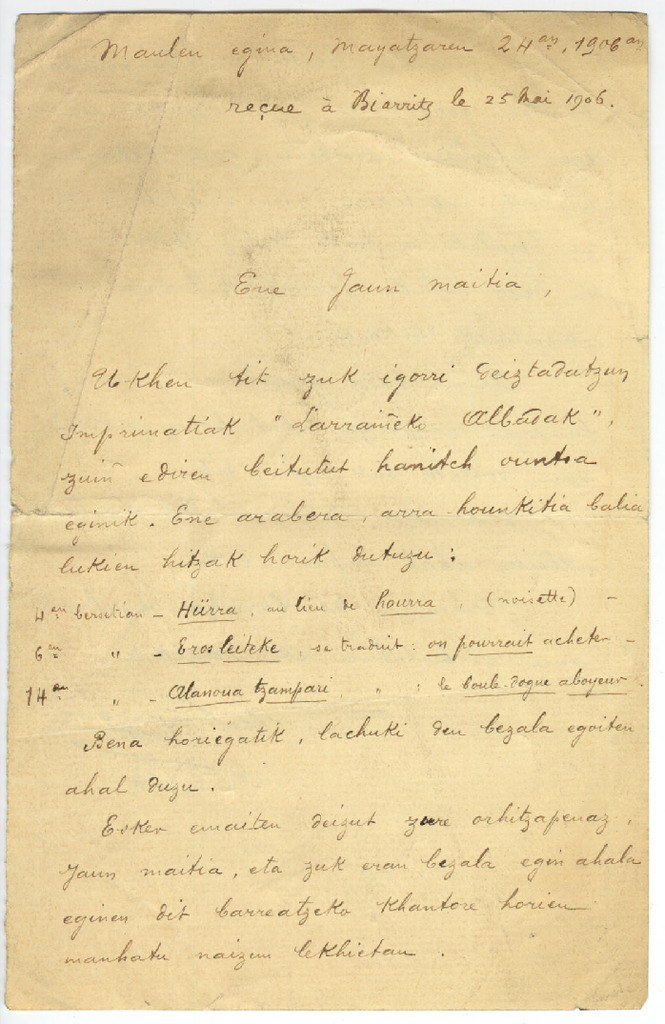 Maulen egina, Mayatzaren 24an, 1906an
reçue à Biarritz le 25 Mai 1906.
Ene Jaun maitia,
Ukhen tit zuk igorri deiztadatzun
Imprimatiak "Larraiñeko Albadak",
zuiñ ediren beitutut hanitch ountsa
eginik. Ene arabera, arra-hounkitia balia
lukien hitzak horik dutuzu :
4en bersetian - Hürra, au lieu de hourra, (noisette) -
6en " - Eros leiteke, se traduit : on pourrait acheter -
14en " - Alanoua tzampari, " : le boule-dogue aboyeur.
Bena horiégatik, lachuki den bezala egoiten
ahal duzu.
Esker emaiten deizut zure orhitzapenaz,
Jaun maitia, eta zuk eran bezala egin ahala
eginen dit barreatzeko khantore horien
manhatu naizun lekhietan.